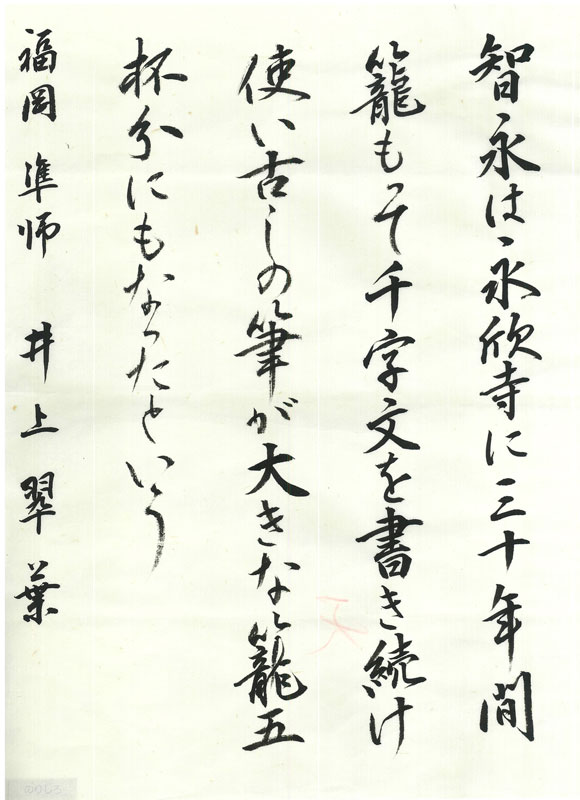 智永は、永欣寺に三十年間
籠もって千字文を書き続け
使い古しの筆が大きな籠五
杯分にもなったという
福岡 準師 井上翠葉
のりしろ